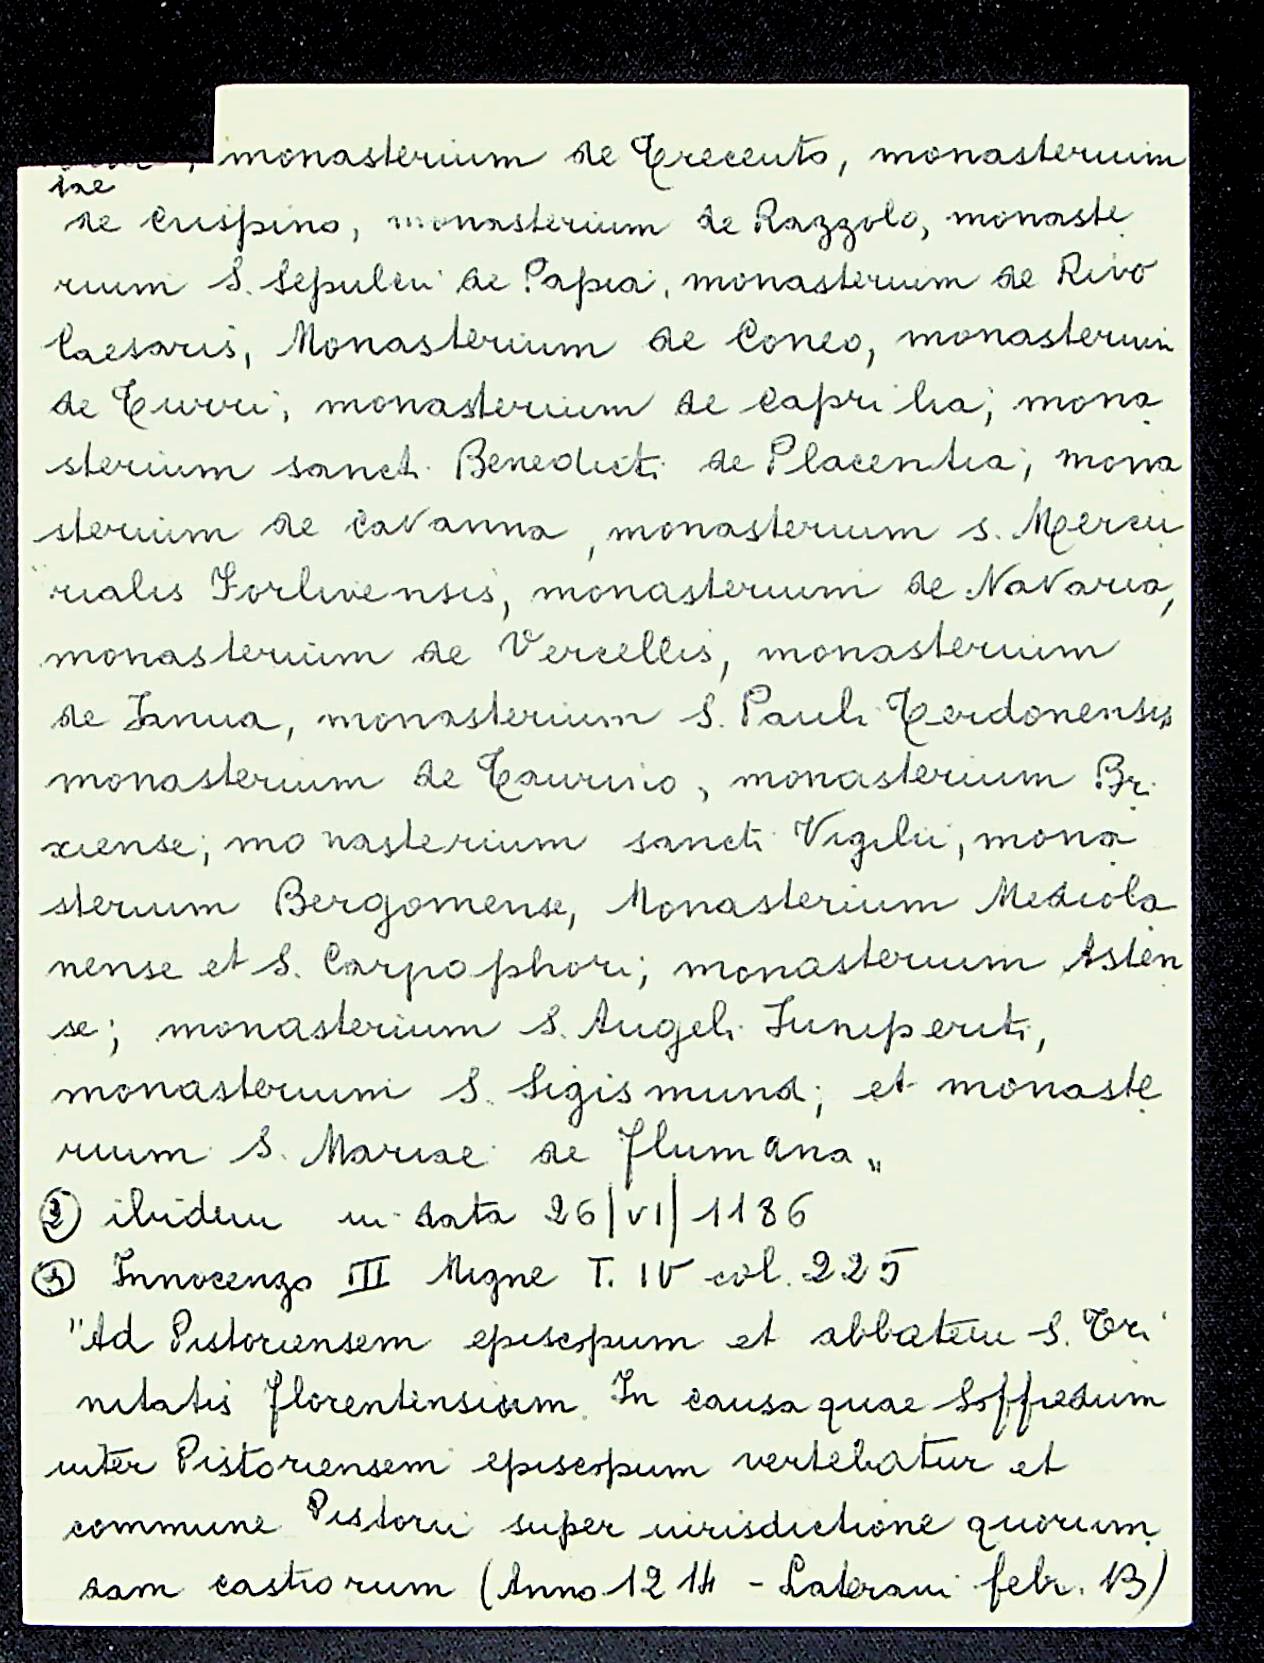 , monasterium de Crecento, monasterium
de Crispino, monasterium de Razzolo, monaste
rium S. Sepulcri de Papia, monasterium de Rivo
Caesaris, Monasterium de Coneo, monasterium
de Turri, monasterium de Caprilia; mona
sterium sancti Benedicti de Placentia; mona
sterium de Cavanna, monasterium s. Mercu
rialis Forlivensis, monasterium de Navaria,
monasterium de Vercellis, monasterium
de Ianua, monasterium S. Pauli Terdonensis
monasterium de Taurino, monasterium Bri
xiense; monasterium sancti Vigilii, mona
sterium Bergomense, Monasterium Mediola
nense et S. Carpophori; monasterium Asten
se; monasterium S. Angeli Iuniperiti,
monasterium S. Sigismundi; et monaste
rium S. Mariae de Flumana"
② ibidem in data 26/VI/1186
③ Innocenzo III Migne T. IV col. 225
"Ad Pistoriensem episcopum et abbatem S. Tri
nitatis florentensium. In causa quae Soffredum
inter Pistoriensem episcopum vertebatur et
commune Pistorii super iurisdictione quorum
dam castrorum (Anno 1214 - Laterani febr. 13)